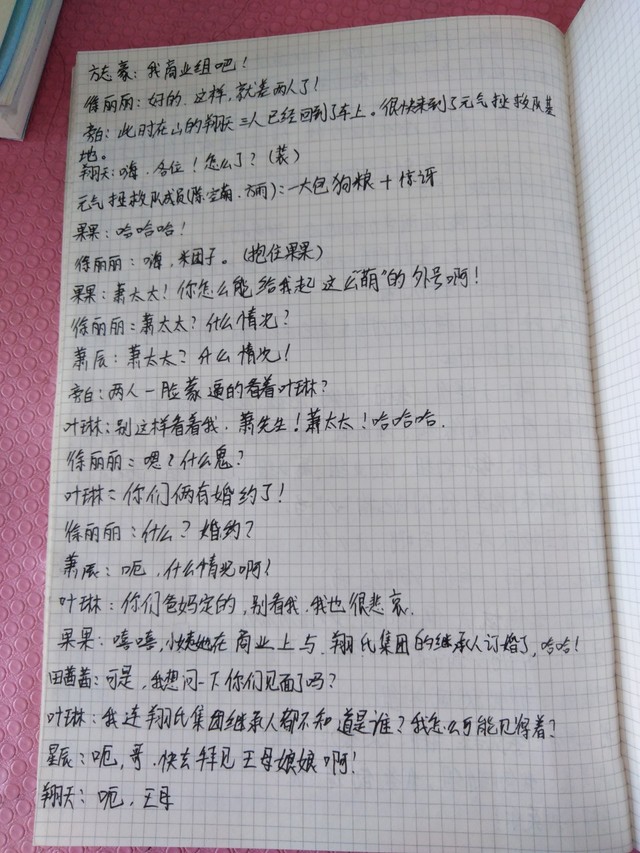 方志豪：我商业组吧！
徐丽丽：好的，这样，就差两人了！
旁白：此时在山的翔天三人已经回到了车上。很快来到了元气拯救队基
地。
翔天：嗨，各位！怎么了？（装）
元气拯救队成员(陈空南、方雨)：一大包狗粮＋惊讶
果果：哈哈哈！
徐丽丽：嗨，米团子。（抱住果果）
果果：萧太太！你怎么能给我起这么“萌”的外号啊！
徐丽丽：萧太太？什么情况？
萧辰：萧太太？什么情况！
旁白：两人一脸蒙逼的看着叶琳？
叶琳：别这样看着我，萧先生！萧太太！哈哈哈.
徐丽丽：嗯？什么鬼？
叶琳：你们俩有婚约了！
徐丽丽：什么？婚约？
萧辰：呃，什么情况啊？
叶琳：你们爸妈定的，别看我，我也很悲哀.
果果：嘻嘻，小姨她在商业上与翔氏集团的继承人订婚了，哈哈！
田酋酋：可是，我想问一下你们见面了吗？
叶琳：我连翔氏集团继承人都不知道是谁？我怎么可能见得着？
星辰：呃，哥，快去拜见王母娘娘啊！
翔天：呃，王母